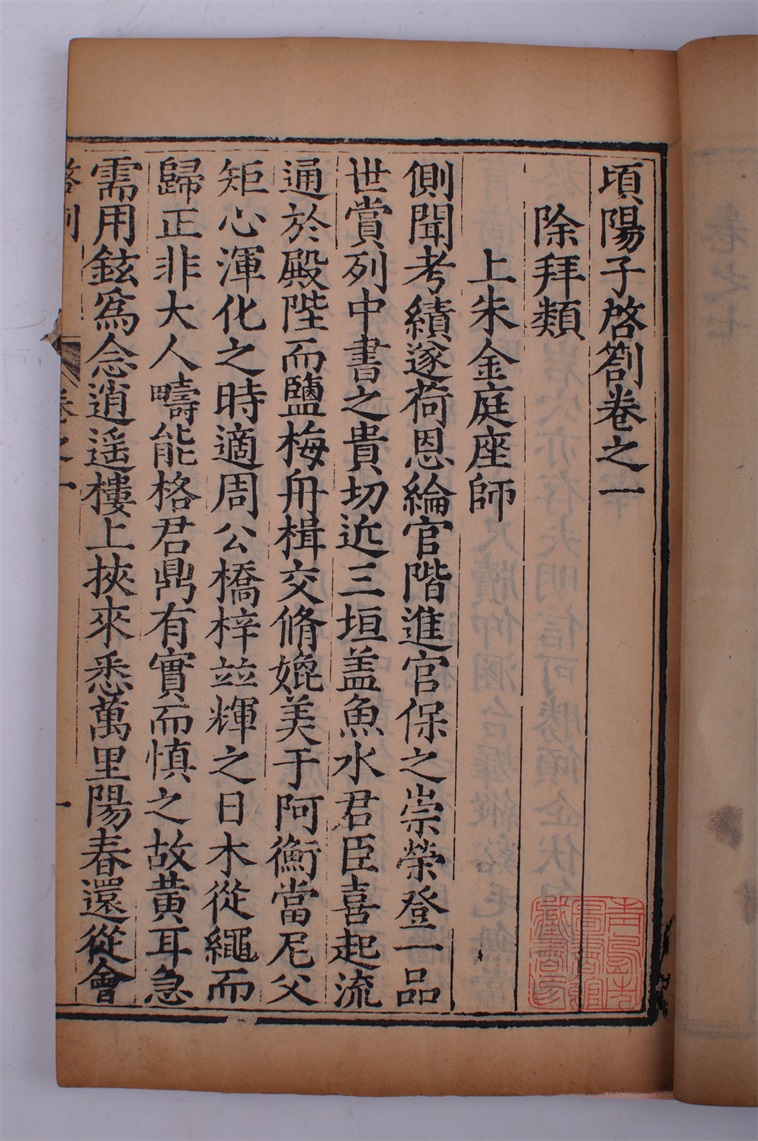 頃陽子啓劄卷之一
除拜類
上朱金庭座師
側聞考績遂荷恩綸官階進官保之崇榮登一品
世賞列中書之貴切近三垣盖魚水君臣喜起流
通於殿陛而鹽梅舟楫交脩媲美于阿衡當尼父
矩心渾化之時適周公橋梓並輝之日木從繩而
歸正非大人疇能格君鼎有實而慎之故黄耳急
需用鉉爲念逍遥樓上挾來悉萬里陽春還從會
啓劄
卷之一
一
卷之七